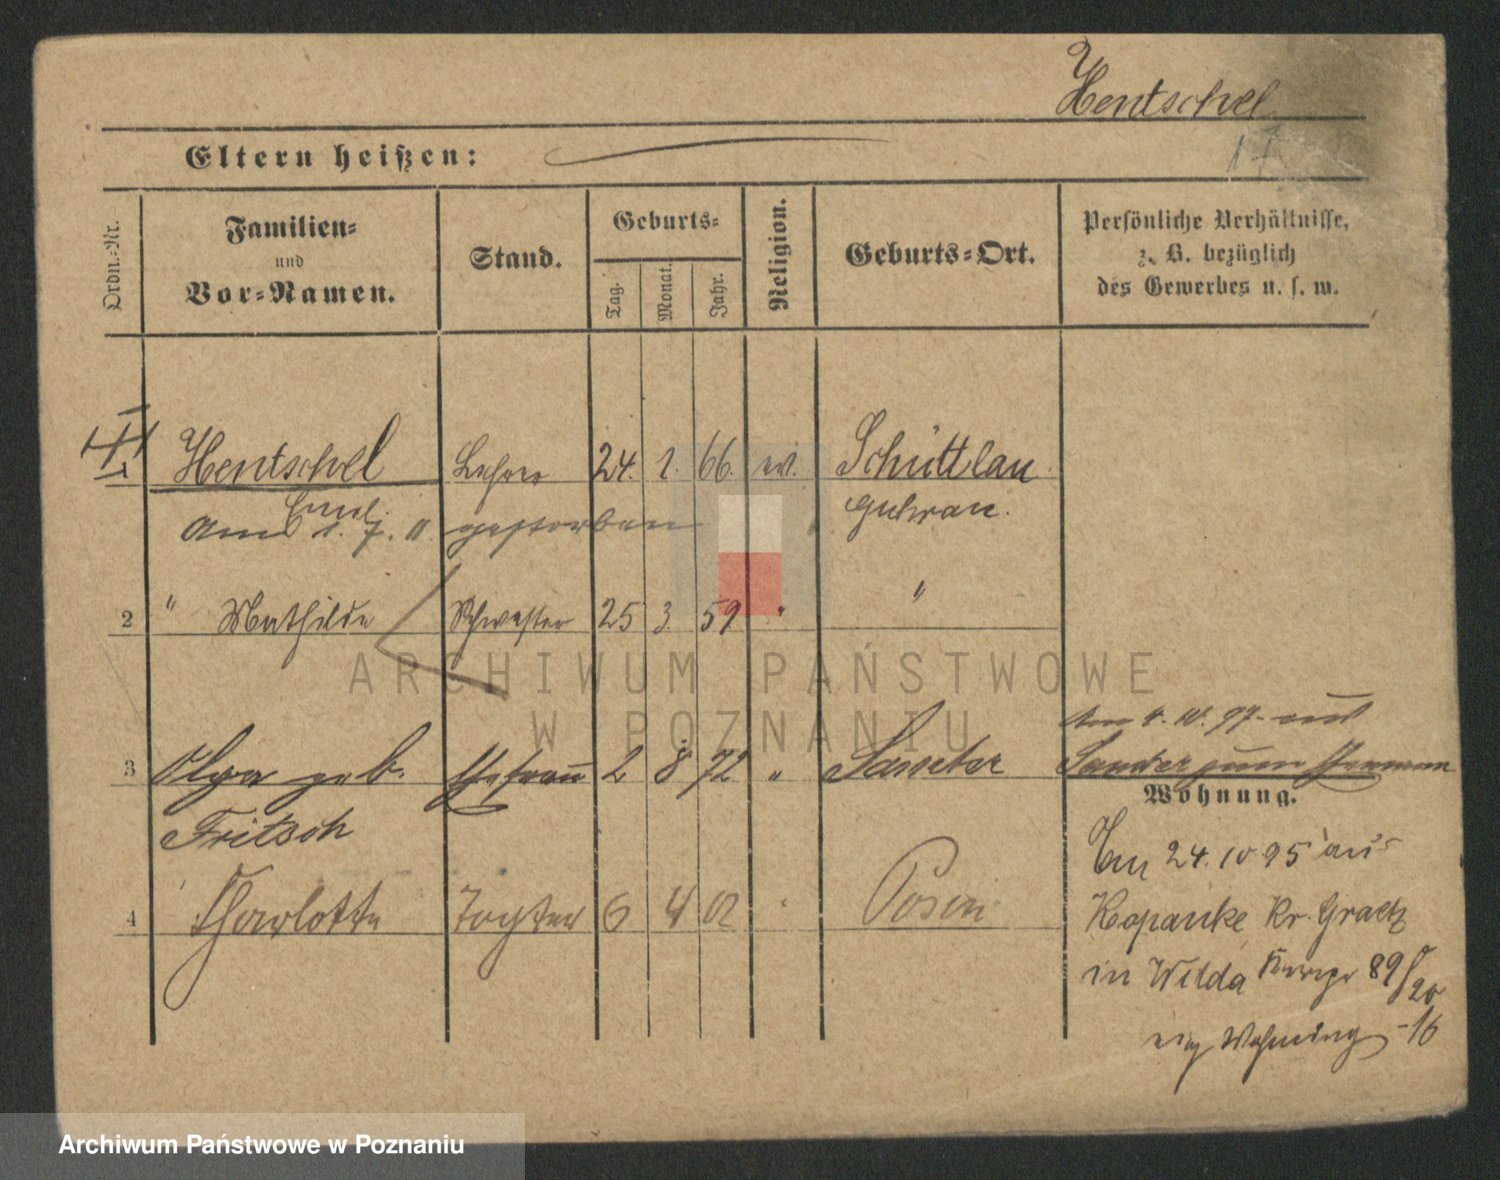 Hentschel
17
Eltern heißen:
Ordn.-Nr.
Familien-
und
Vor-Namen.
Stand.
Geburts-
Tag.
Monat.
Jahr.
Religion.
Geburts-Ort.
Persönliche Verhältnisse,
z. B. bezüglich
des Gewerbes u. s. w.
Hentschel Lehrer 24. 1. 66. ev. Schüttlau
Emil Guhrau.
Am 1. 7. 11 gestorben
2 " Mathilde Schwester 25 3. 59 " "
ARCHIWUM PAŃSTWOWE
W POZNANIU
Am 4. 10. 97. aus
3 Olga geb. Ehefrau 2 8 72 "
Fritsch
Wohnung.
Am 24. 10 95 aus
4 Charlotte Tochter 6 4 02 Posen
Kopanke Kr. Graetz
in Wilda 89/20
Wohnung - 16
Archiwum Państwowe w Poznaniu